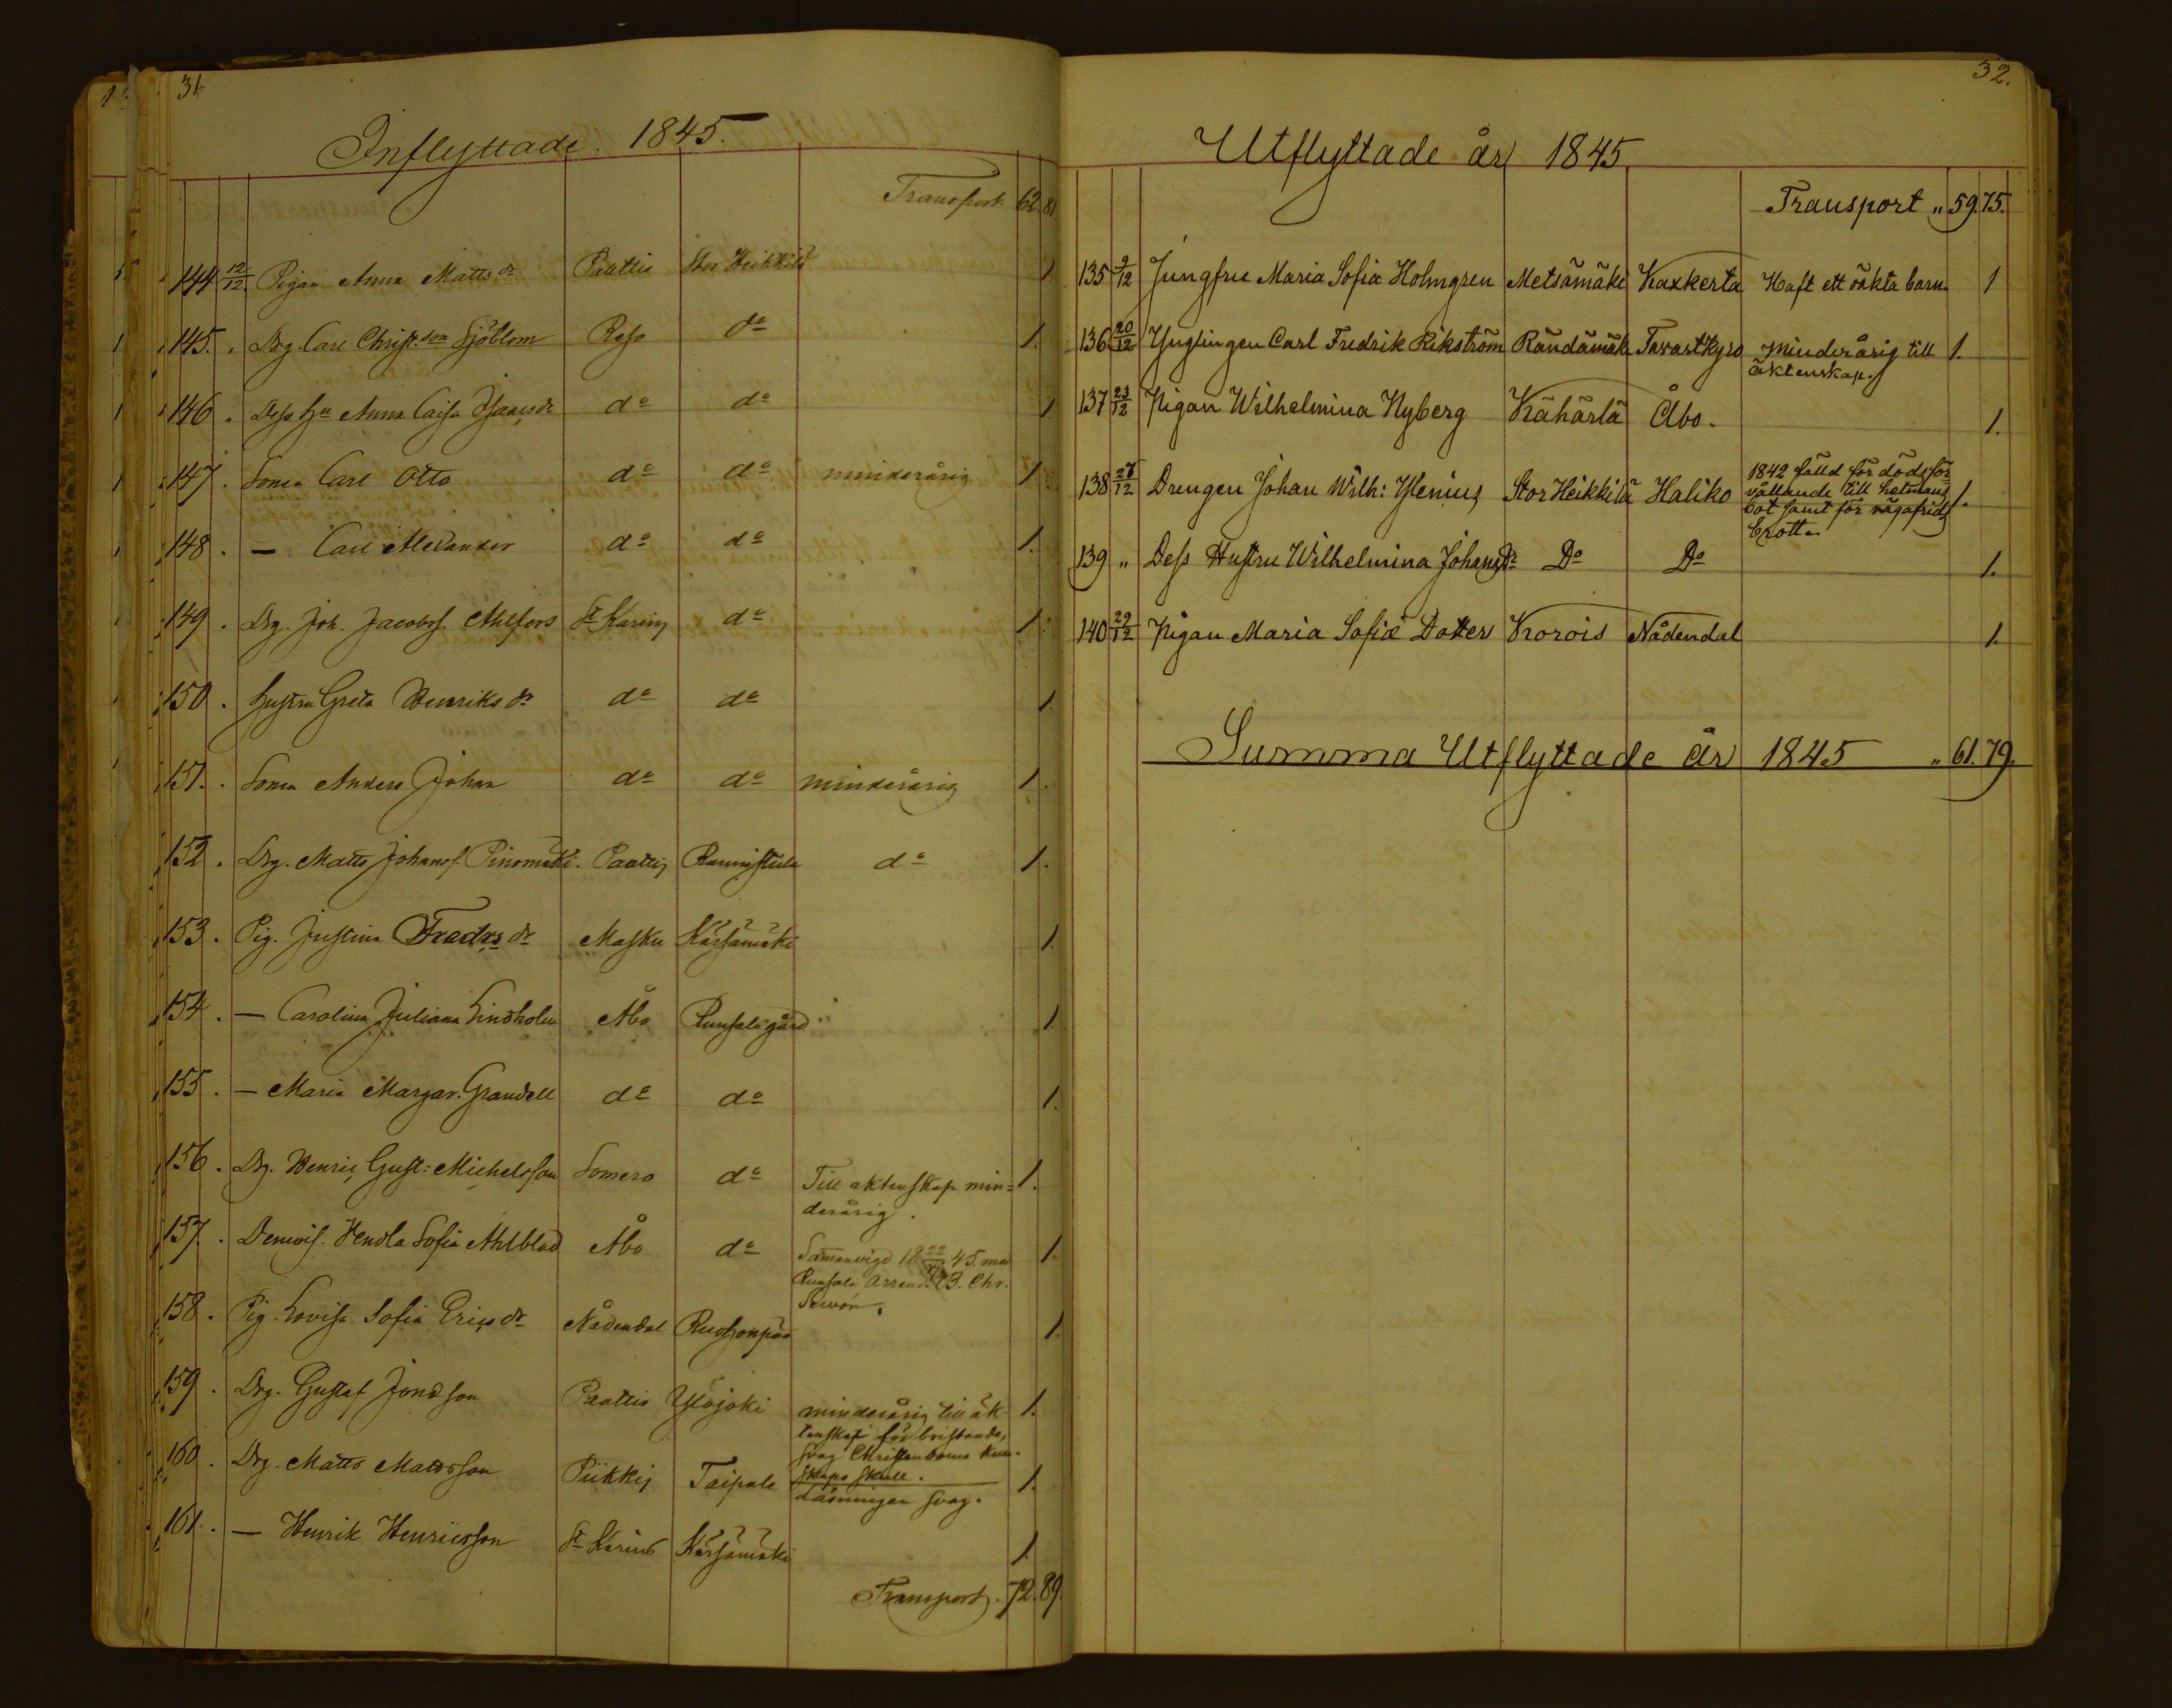 31
Inflyttade. 1845.
Transport. 62. 81
144 12/12. Pigan Anna Matts dr Paattis Stor Heikkilä 1
145. . Drg. Carl Christ.son Sjöblom Reso do 1.
146 . Dess hu Anna Caisa Isaacsdr do do 1
147 . Sonen Carl Otto do do minderårig 1
148 . — Carl Alexander do do 1.
149 . Drg. Joh. Jacobss. Ahlfors St Karins do 1
150 . Hustru Greta Henriks dr do do 1.
151. . Sonen Anders Johan do do minderårig 1
152 . Drg. Matts Johanss. Pinomäki. Paattis Raunistula do 1.
153 . Pig. Justina Fredrs dr Masku Kärsämäki 1.
154 . — Carolina Juliana Lindholm Åbo Runsala gård 1.
155 . — Maria Margar. Grandell do do 1.
156 . Dg. Henric Gust: Michelsson Somero do Till aktenskap min= 1.
derårig.
157 . Demois. Hendla Sofia Ahlblad Åbo do Sammanvigd 18 22 45. med 1.
Runsala Arrend. B. Chr.
158 . Pig. Lovisa Sofia Erics dr Nådendal Ruohonpää 1.
159 . Drg. Gustaf Jonasson Paattis Yläjoki minderårig till äk- 1.
tenskap för bristande,
svag Christendoms kun-
skaps skull.
160 . Drg. Matts Mattsson Piikkis Taipale 1.
Läsningen svag.
161. . — Henrik Henricsson St Karins Kärsämäki 1.
Transport. 72. 89.
32.
Utflyttade år 1845
Transport „ 59. 75.
135 9/12 Jungfru Maria Sofia Holmgren Metsämäki Kaxkerta Haft ett oäkta barn 1
136 20/12 Ynglingen Carl Fredrik Rikström Rändämäki Tavastkyro minderårig till 1.
äktenskap.
137 23/12 Pigan Wilhelmina Nyberg Kähärlä Åbo. 1.
138 27/12 Drengen Johan Wilh: Ylenius Stor Heikkilä Haliko 1842 fälld för dödsför= 1.
vållande till helmans
bot samt för vägafrids
brott.
139 „ Dess Hustru Wilhelmina Johansdr Do Do 1.
140 29/12 Pigan Maria Sofia Dotter Korois Nådendal 1.
Summa Utflyttade år 1845 „ 61. 79.